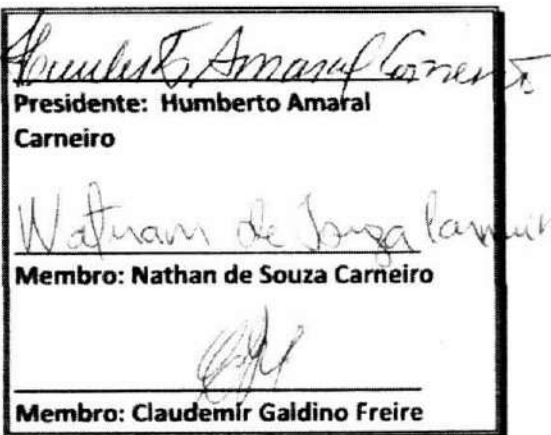 Humberto Amaral Carneiro
Presidente: Humberto Amaral
Carneiro
Nathan de Souza Carneiro
Membro: Nathan de Souza Carneiro
Membro: Claudemir Galdino Freire